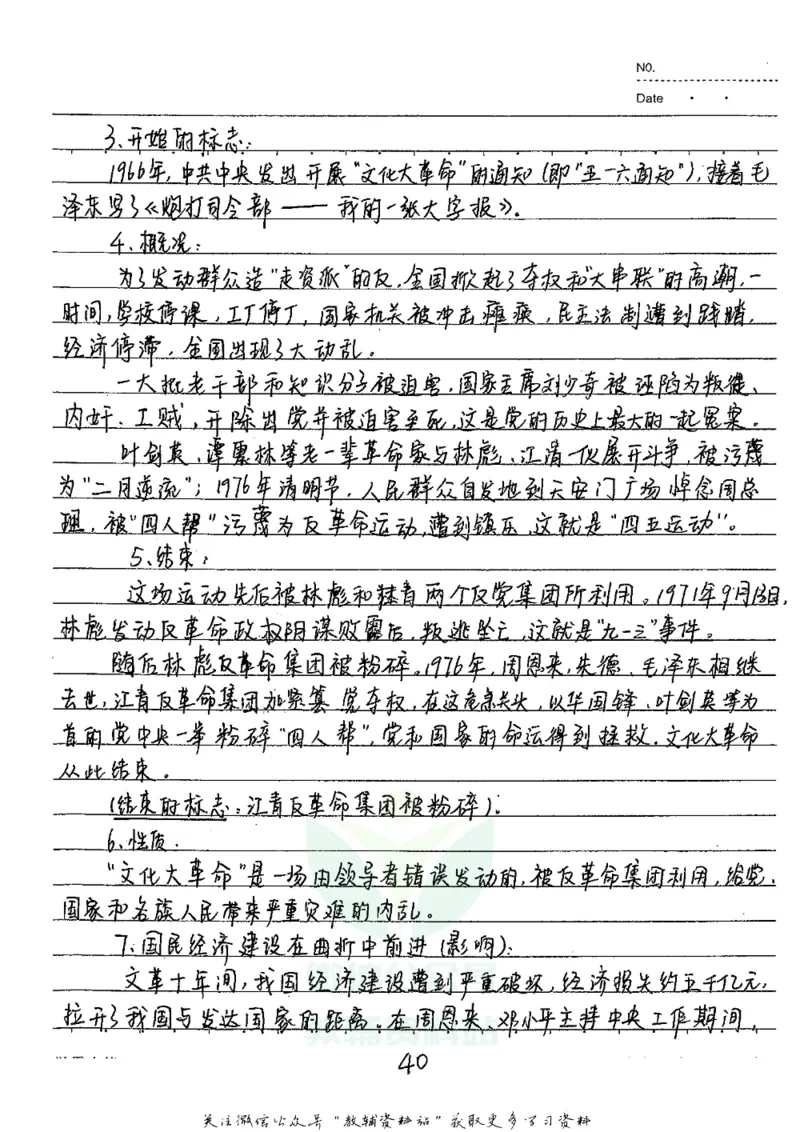 NO.
Date
3、开始的标志：
1966年，中共中央发出开展“文化大革命”的通知（即“五一六通知”），接着毛
泽东写了《炮打司令部——我的一张大字报》。
4、概况：
为了发动群众造“走资派”的反，全国掀起了夺权和“大串联”的高潮，一
时间，学校停课，工厂停工，国家机关被冲击瘫痪，民主法制遭到践踏，
经济停滞，全国出现了大动乱。
一大批老干部和知识分子被迫害，国家主席刘少奇被诬陷为叛徒、
内奸、工贼，开除出党并被迫害至死，这是党的历史上最大的一起冤案。
叶剑英、谭震林等老一辈革命家与林彪、江清一伙展开斗争，被污蔑
为“二月逆流”；1976年清明节，人民群众自发地到天安门广场悼念周总
理，被“四人帮”污蔑为反革命运动，遭到镇压，这就是“四五运动”。
5、结束：
这场运动先后被林彪和江青两个反党集团所利用。1971年9月13日，
林彪发动反革命政权阴谋败露后，叛逃坠亡，这就是“九一三”事件。
随后林彪反革命集团被粉碎。1976年，周恩来，朱德、毛泽东相继
去世，江青反革命集团加紧篡党夺权，在这危急关头，以华国锋、叶剑英等为
首的党中央一举粉碎“四人帮”，党和国家的命运得到拯救。文化大革命
从此结束。
（结束的标志：江青反革命集团被粉碎）：
6、性质.
“文化大革命”是一场由领导者错误发动的，被反革命集团利用，给党、
国家和各族人民带来严重灾难的内乱。
7、国民经济建设在曲折中前进（影响）：
文革十年间，我国经济建设遭到严重破坏，经济损失约五千亿元，
拉开了我国与发达国家的距离；在周恩来、邓小平主持中央工作期间，
教辅资料站
40
关注微信公众号“教辅资料站”获取更多学习资料